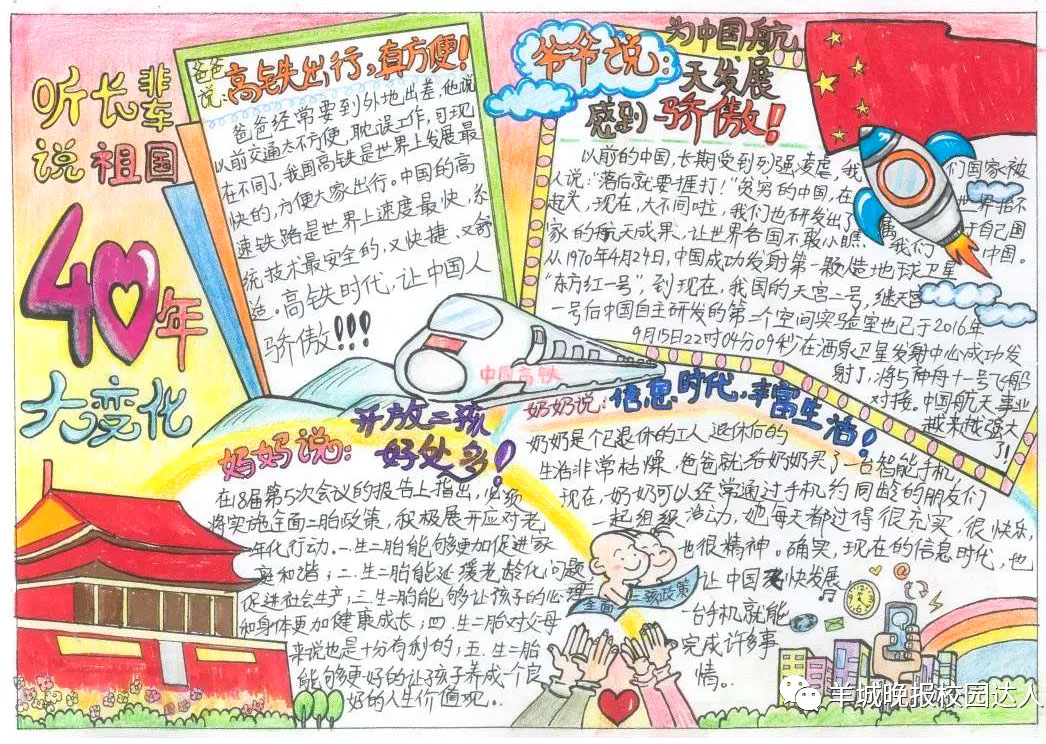 听长辈
说祖国
40年
大变化
爸爸
说:高铁出行,真方便!
爸爸经常要到外地出差,他说
以前交通太不方便,耽误工作,可现
在不同了,我国高铁是世界上发展最
快的,方便大家出行。中国的高
速铁路是世界上速度最快、系
统技术最安全的,又快捷、又舒
适。高铁时代,让中国人
骄傲!!!
中国高铁
爷爷说:
为中国航
天发展
感到骄傲!
以前的中国,长期受到列强凌虐,我们国家被
人说:“落后就要捱打!”贫穷的中国,在世界抬不
起头,现在,大不同啦,我们也研发出了属于自己国
家的航天成果,让世界各国不敢小瞧我们中国。
从1970年4月24日,中国成功发射第一颗人造地球卫星
“东方红一号”,到现在,我国的天宫二号,继天宫
一号后中国自主研发的第二个空间实验室也已于2016年
9月15日22时04分09秒在酒泉卫星发射中心成功发
射了,将与神舟十一号飞船
对接。中国航天事业
越来越强大
了!
妈妈说:
开放二孩
好处多!
在18届第5次会议的报告上指出,必须
将实施全面二胎政策,积极展开应对老
年化行动。一.生二胎能够更加促进家
庭和谐;二.生二胎能延缓老龄化问题
促进社会生产;三.生二胎能够让孩子的心理
和身体更加健康成长;四.生二胎对父母
来说也是十分有利的;五.生二胎
能够更好的让孩子养成一个良
好的人生价值观。
全面二孩政策
奶奶说:信息时代,丰富生活!
奶奶是个已退休的工人,退休后的
生活非常枯燥,爸爸就给奶奶买了一台智能手机,
现在,奶奶可以经常通过手机约同龄的朋友们
一起组织活动,她每天都过得很充实,很快乐,
也很精神。确实,现在的信息时代,也
让中国快发展,
一台手机就能
完成许多事
情。
羊城晚报校园达人